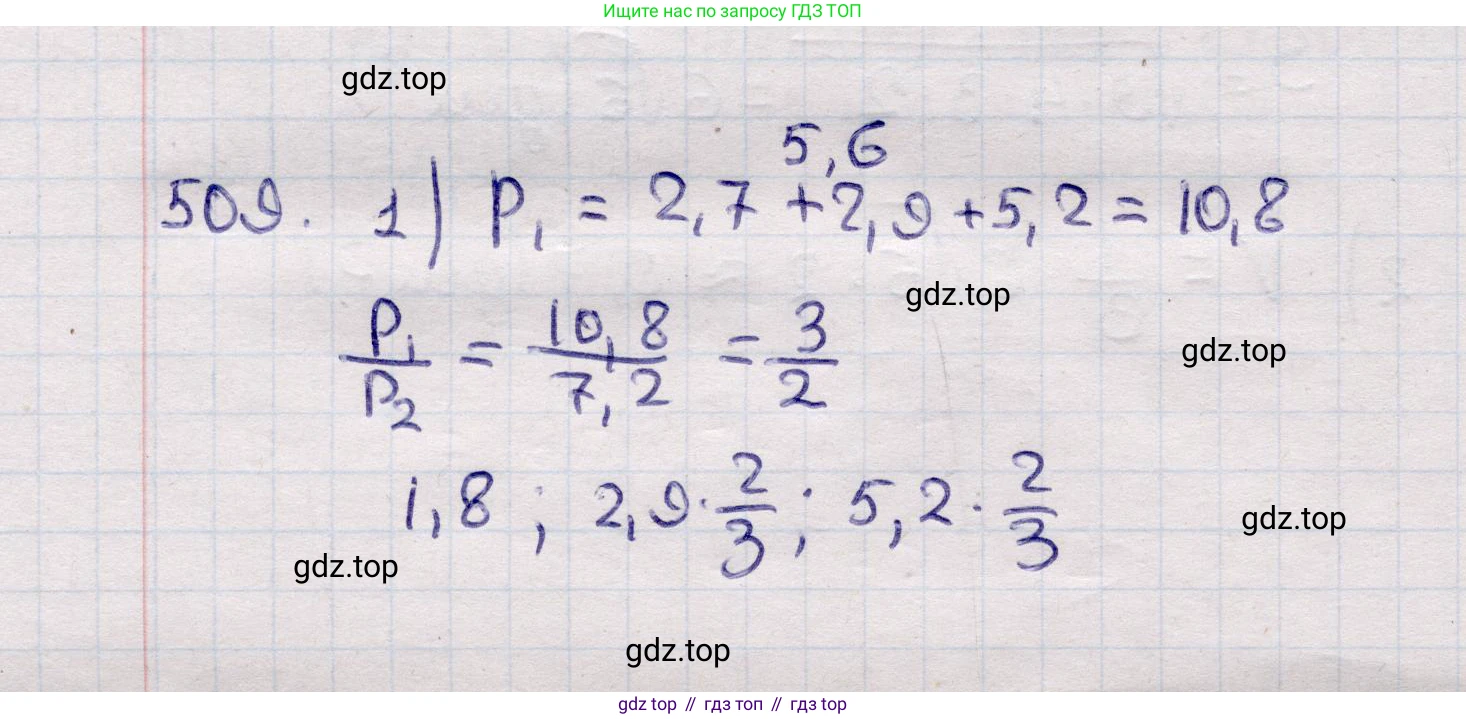 Ищите нас по запросу ГДЗ ТОП
gdz.top
5,6
509. 1) P₁ = 2,7 + 2,9 + 5,2 = 10,8
gdz.top
P₁/P₂ = 10,8/7,2 = 3/2
gdz.top
1,8 ; 2,9 · 2/3 ; 5,2 · 2/3
gdz.top
gdz.top
gdz.top
gdz top // гдз топ // гдз top